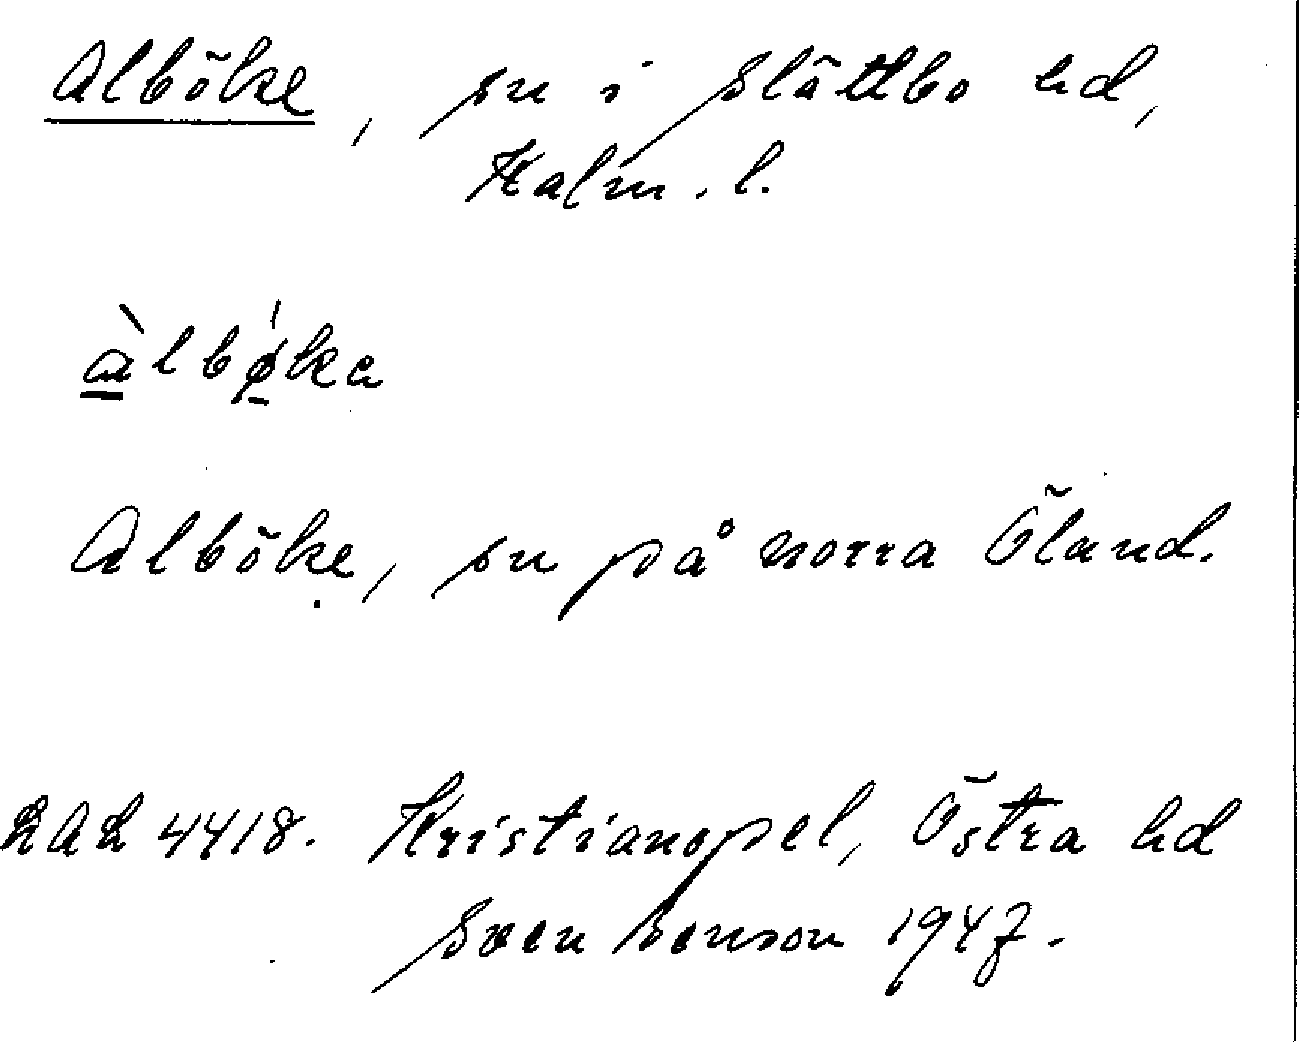 Alböke, sn i Slättbo hd,
Kalm. l.
àlbǿka
Alböke, sn på norra Öland.
LAL 4418. Kristianopel, Östra hd
Sven Benson 1947.